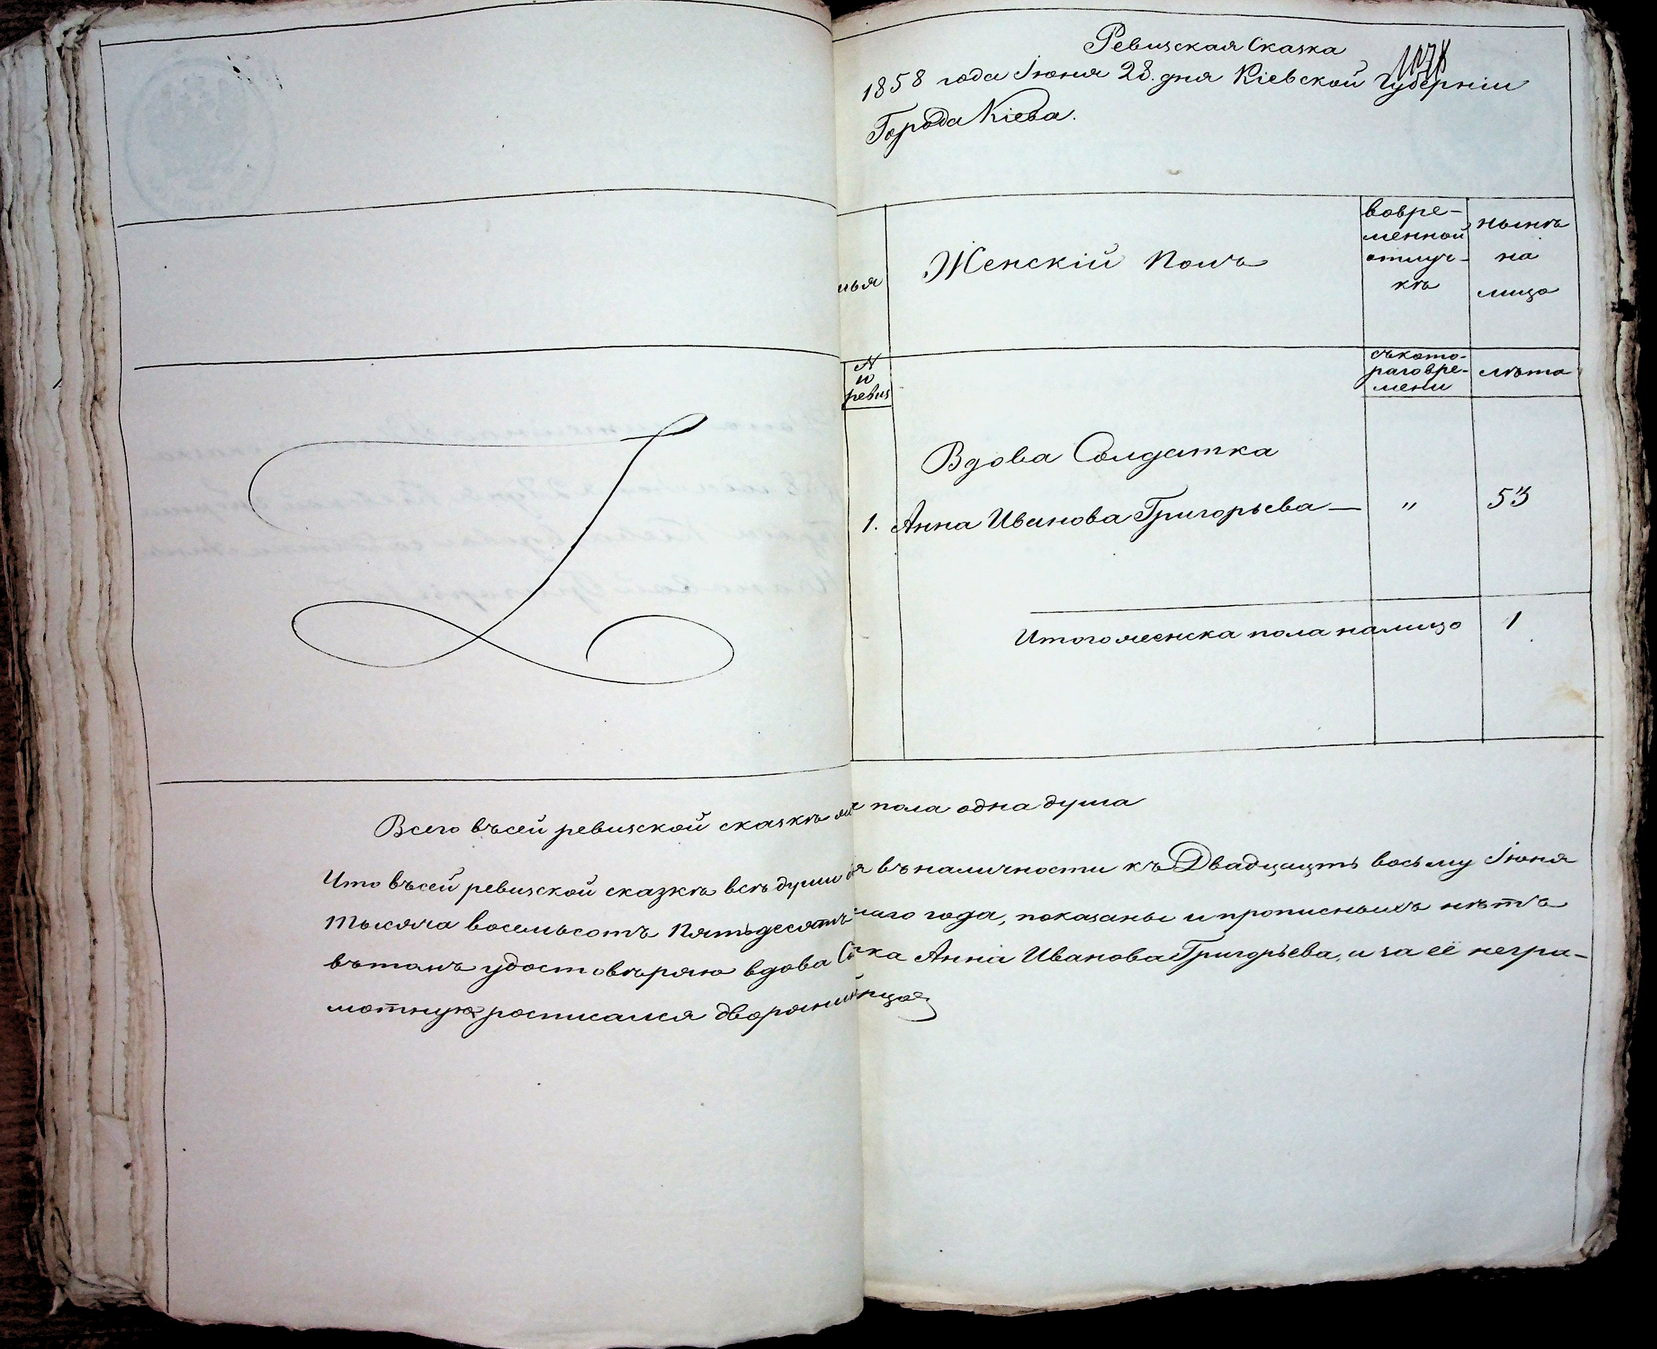 Ревизская Сказка
1858 года Іюня 28. дня Кіевской Губерніи
Города Кіева.
Женскій Полъ
вовре-
менной
отлуч-
кѣ
нынѣ
на
лицо
мья
N
по
ревиз
съкото-
раговре-
мени
лѣта
Вдова Солдатка
1. Анна Иванова Григорьева — " 53
Итого женска пола налицо 1
Всего въсей ревизской сказкѣ пола одна душа
Что въсей ревизской сказкѣ всѣ души въналичности къ Двадцать восьму Іюня
Тысяча восемьсотъ Пятьдесятъ года, показаны и прописныхъ нѣтъ
вътомъ удостовѣряю вдова Анна Иванова Григорьева, и за её негра-
мотную росписался дворянинъ